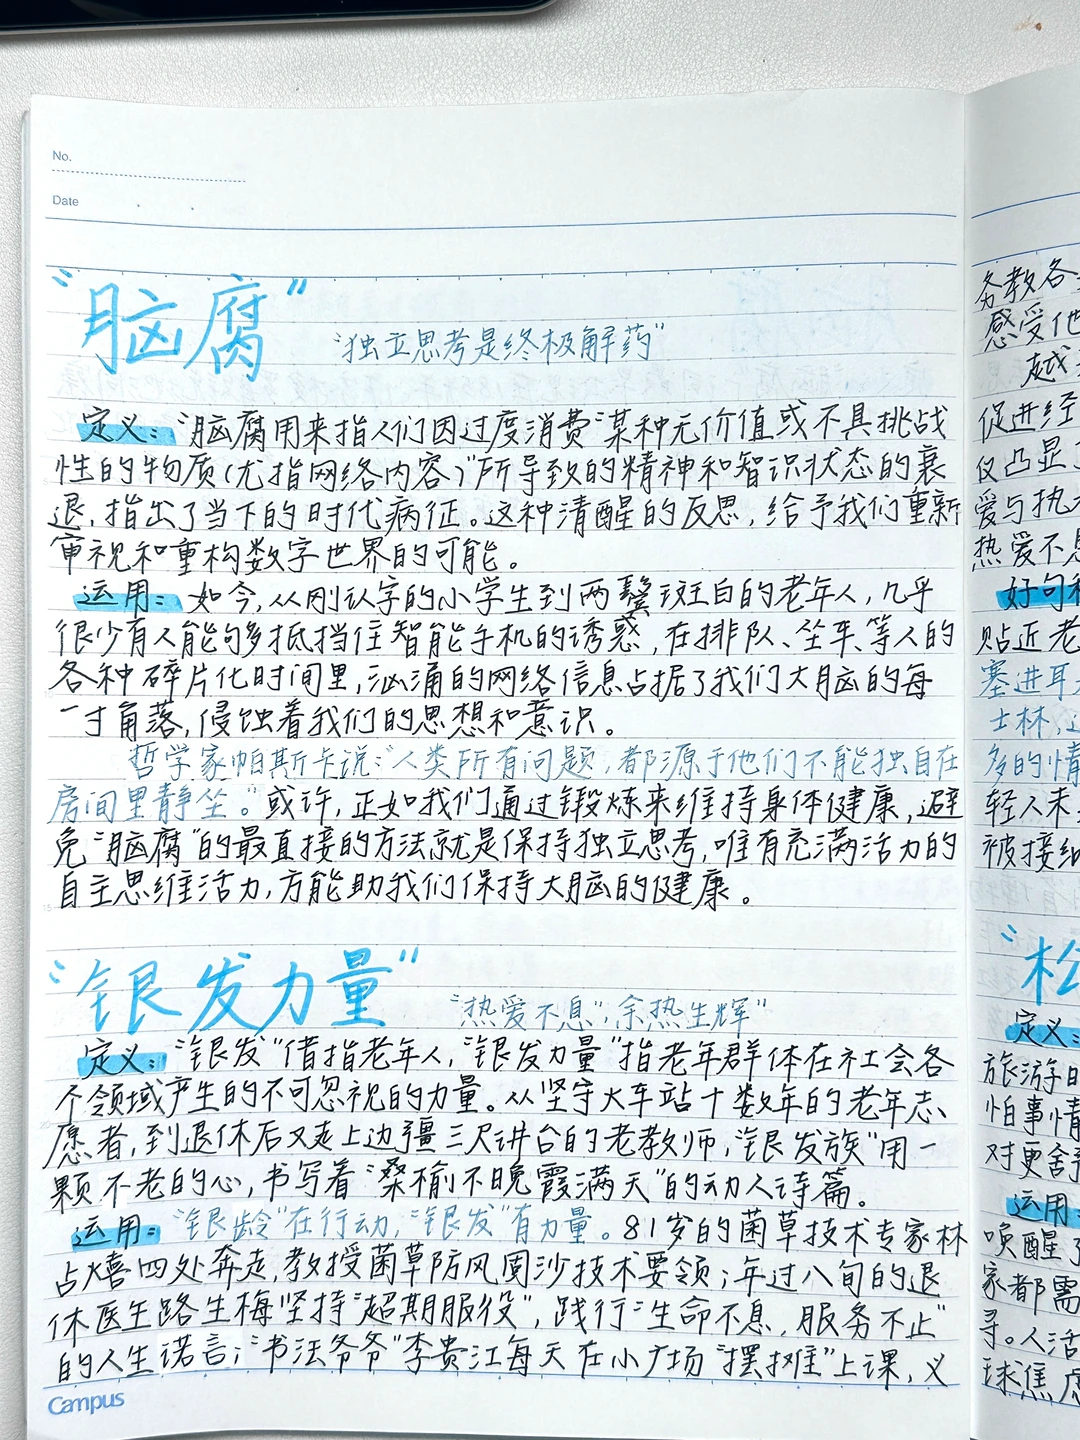 No.
Date
“脑腐”
“独立思考是终极解药”
定义：“脑腐用来指人们因过度消费“某种无价值或不具挑战
性的物质(尤指网络内容)”所导致的精神和智识状态的衰
退，指出了当下的时代病征。这种清醒的反思，给予我们重新
审视和重构数字世界的可能。
运用：如今，从刚认字的小学生到两鬓斑白的老年人，几乎
很少有人能够抵挡住智能手机的诱惑，在排队、坐车、等人的
各种碎片化时间里，汹涌的网络信息占据了我们大脑的每
一寸角落，侵蚀着我们的思想和意识。
哲学家帕斯卡说：“人类所有问题，都源于他们不能独自在
房间里静坐。”或许，正如我们通过锻炼来维持身体健康，避
免“脑腐”的最直接的方法就是保持独立思考，唯有充满活力的
自主思维活力，方能助我们保持大脑的健康。
“银发力量”
“热爱不息”，余热生辉”
定义：“银发”借指老年人，“银发力量”指老年群体在社会各
个领域产生的不可忽视的力量。从坚守火车站十数年的老年志
愿者，到退休后又走上边疆三尺讲台的老教师，“银发族”用一
颗不老的心，书写着“桑榆不晚霞满天”的动人诗篇。
运用：“银龄”在行动，“银发”有力量。81岁的菌草技术专家林
占熺四处奔走，教授菌草防风固沙技术要领；年过八旬的退
休医生路生梅坚持“超期服役”，践行“生命不息，服务不止”
的人生诺言；“书法爷爷”李贵江每天在小广场“摆摊”上课，义
Campus
务教各
感受他
越
促进经
仅凸显
爱与热
热爱不息
好句
贴近老
塞进耳
士林，
多的情
轻人未
被接纳
“松
定义：
旅游的
怕事情
对更舍
运用
唤醒了
家都需
寻。人活
球焦虑